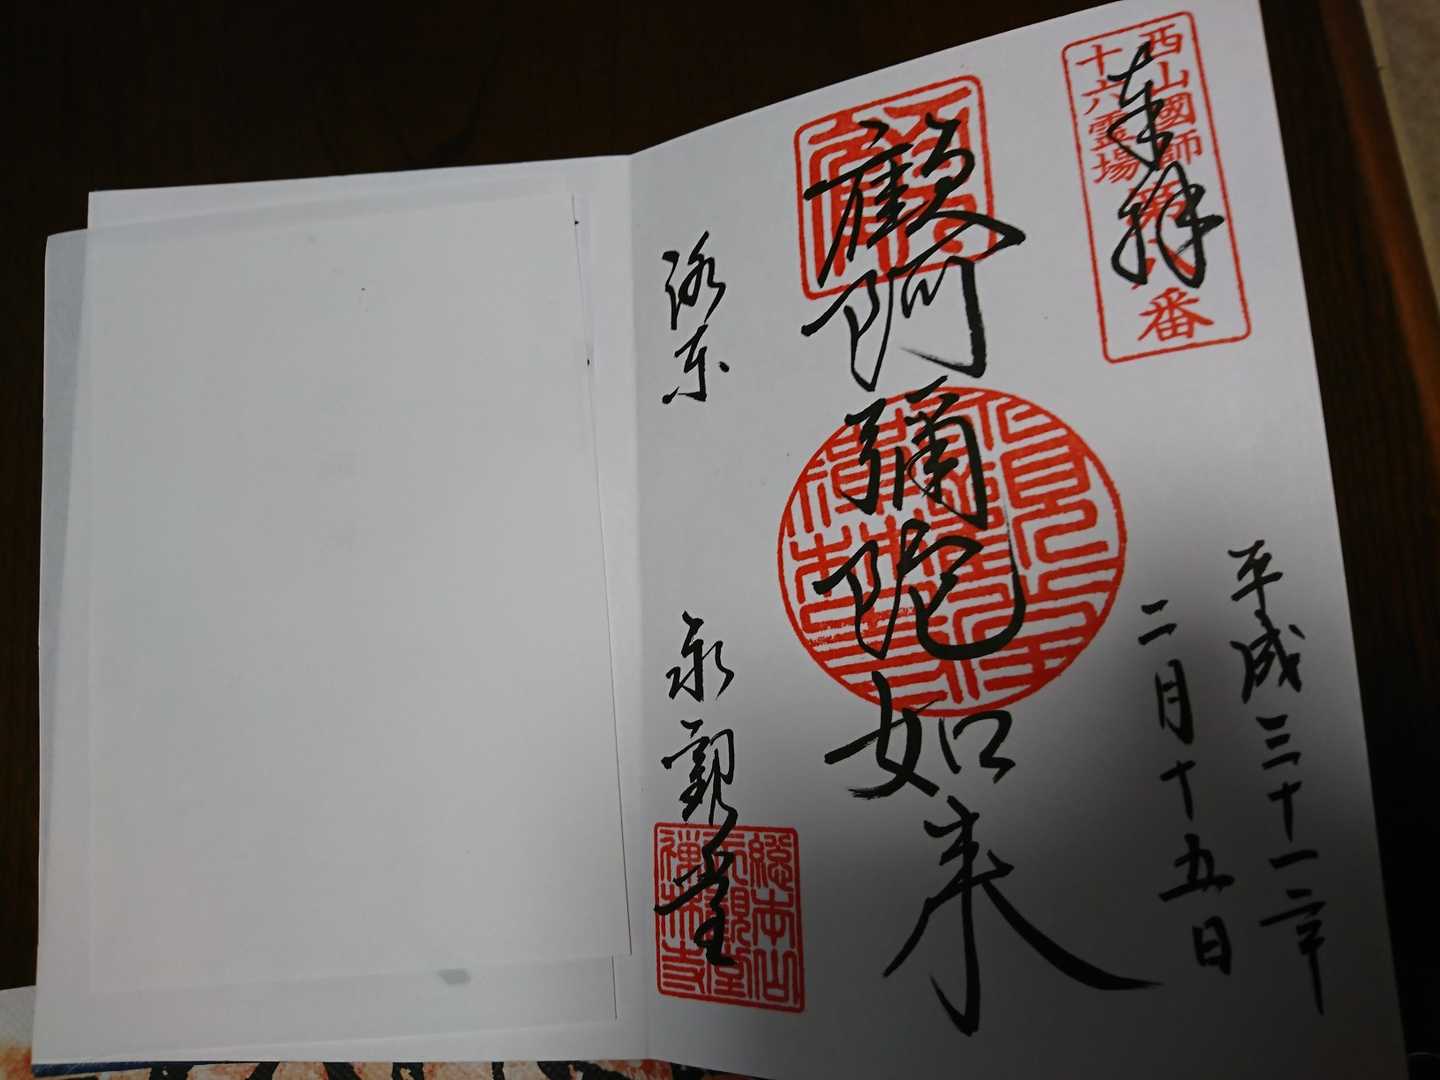 西山國師
十六霊場 第八番
奉拝
平成三十一年
二月十五日
顧阿彌陀如来
洛東 永觀堂
総本山
永觀堂
禅林寺